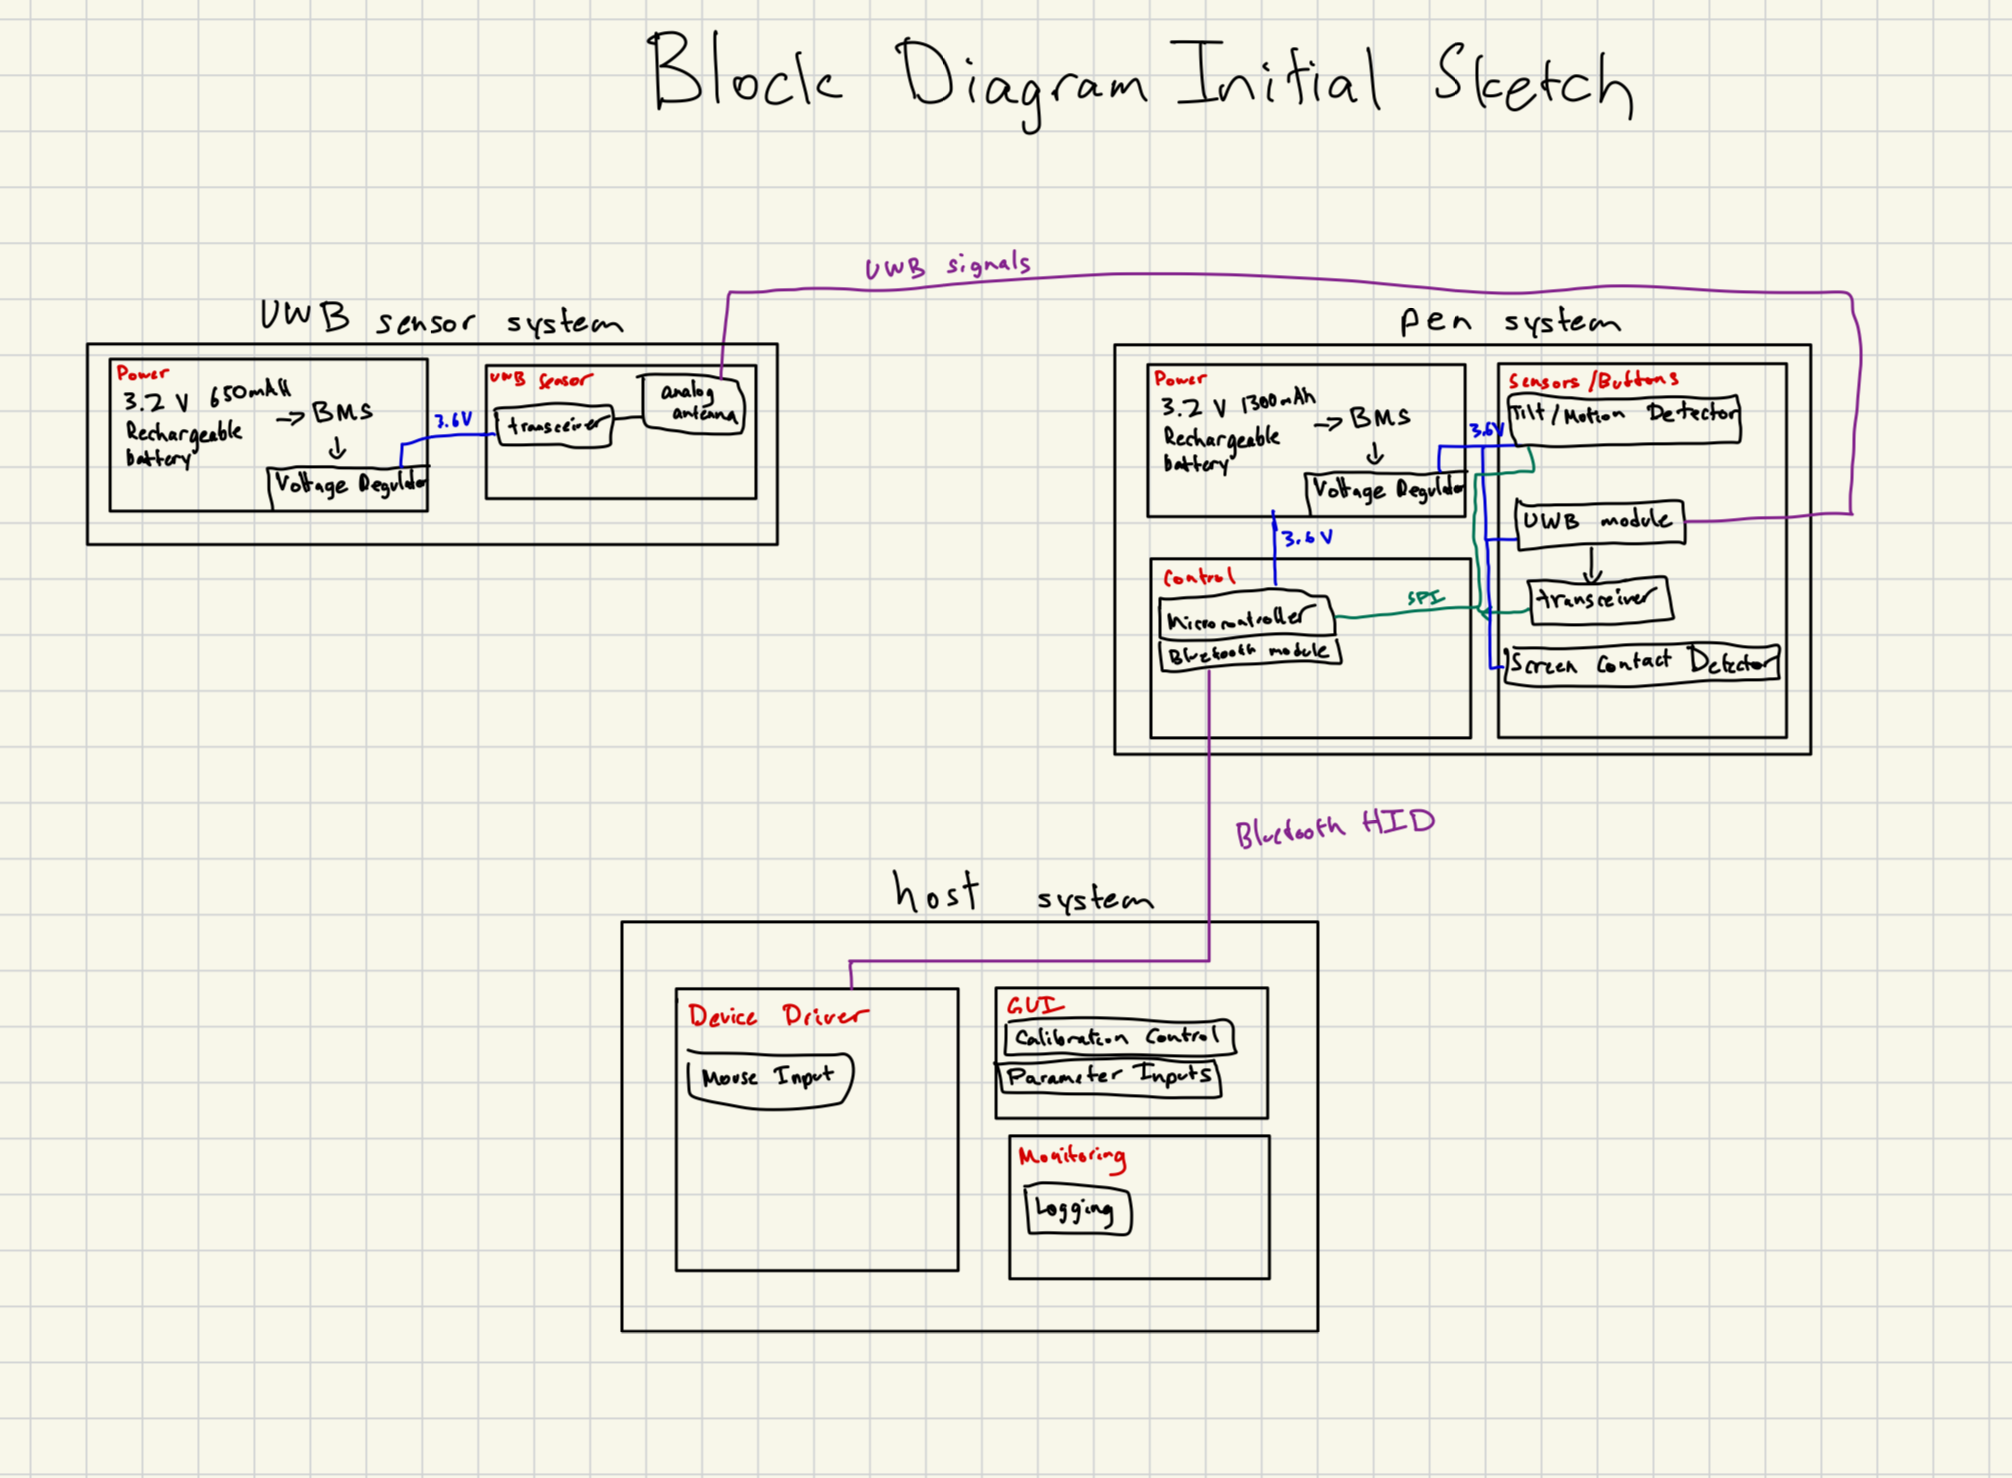 Block Diagram Initial Sketch
UWB signals
UWB sensor system
Power
3.2 V 650mAH
Rechargeable
battery
→ BMS
↓
Voltage Regulator
3.6V
UWB Sensor
transceiver
analog
antenna
pen system
Power
3.2 V 1300mAh
Rechargeable
battery
→ BMS
↓
Voltage Regulator
3.6V
3.6V
Sensors/Buttons
Tilt/Motion Detector
UWB module
transceiver
Screen Contact Detector
Control
Microcontroller
Bluetooth module
SPI
Bluetooth HID
host system
Device Driver
Mouse Input
GUI
Calibration Control
Parameter Inputs
Monitoring
Logging